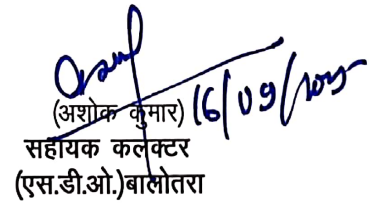 (अशोक कुमार) 16/09/2025
सहायक कलेक्टर
(एस.डी.ओ.)बालोतरा